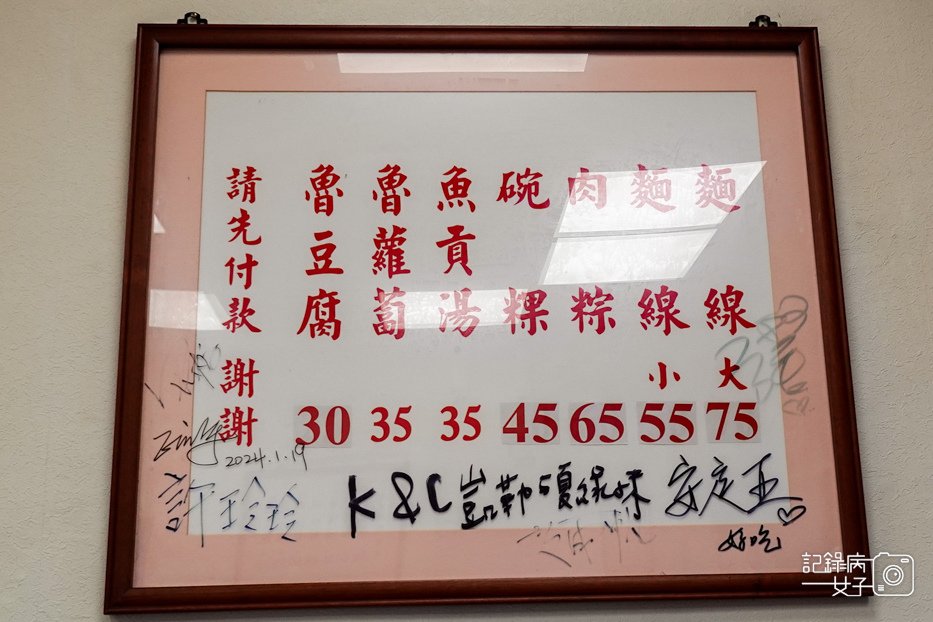 麵線大 75
麵線小 55
肉粽 65
碗粿 45
魚貢湯 35
魯蘿蔔 35
魯豆腐 30
請先付款謝謝
2024.1.19
許玲玲
K&C 凱勒
安定五
好吃
記錄病
女子